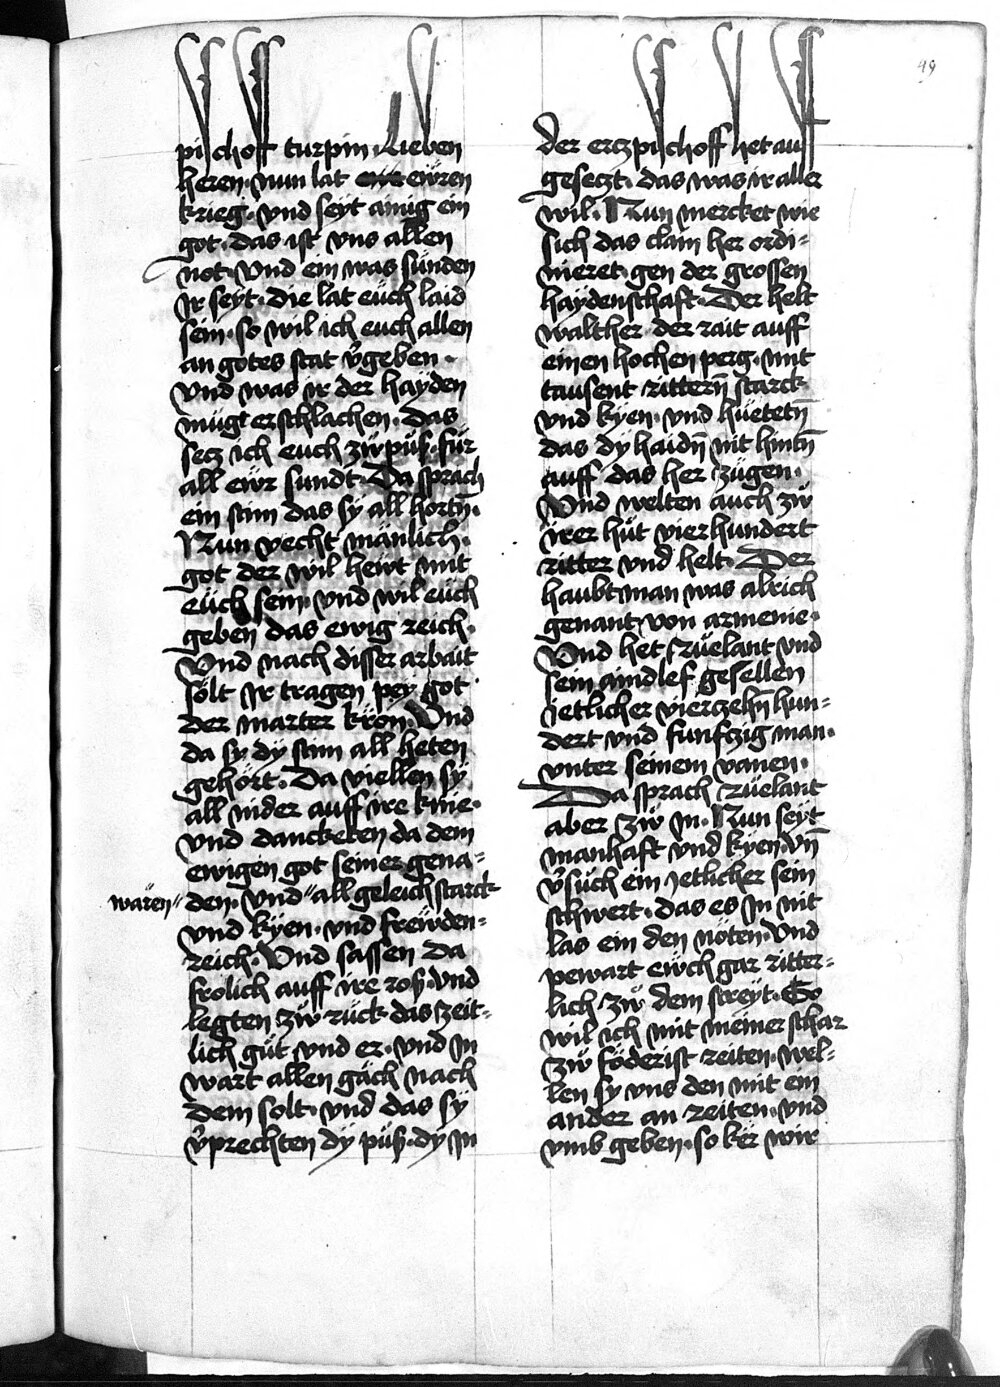 49
pischoff turpin. Lieben
heren. nun lat ewren
krieg. vnd seyt ainig ein
got. das ist vns allen
not. Vnd ein was sünden
Jr seyt. die lat eüch laid
sein. so wil ich euch allen
an gotes stat v̈geben.
Vnd was ir der hayden
mügt erschlachen. das
secz ich euch zw püß. für
all ewr sundt. Da sprach
ein stim das sy all hortn̄.
Nun vecht mänlich.
got der wil hewt mit
eüch sein. vnd wil eüch
geben das ewig reich.
Vnd nach disser arbait
sölt Jr tragen pey got
der marter kron. Vnd
da sy dy stim all heten
gehört. Da viellen sy
all nider auff ire knie.
vnd dancketen da dem
ewigen got seiner gena-
wären" den. vnd " all geleich starck
vnd kyen. vnd frewden-
reich. Vnd sassen da
frolich auff ire roß. vnd
legten zw rück das zeit-
lich güt vnd er. vnd Jn
wart allen gäch nach
dem solt. vnd das sy
v̈prechten dÿ püß. dy Jn
der erczpischoff het auf
geseczt. das was ir aller
wil. Nun mercket wie
sich das clain her ordi-
nieret. gen der grossen
haÿdenschaft. Der helt
walther. der rait auff
einen hochen perg. mit
tausent rittern̄ starck
vnd kyen. vnd hüetetn̄
das dy haidn̄ nit hintn̄
auff das her zügen.
Vnd welten auch zw
irer hüt vierhundert
ritter vnd helt. Der
haubtman was alrich
genant von armenie.
Vnd het rüelant vnd
sein aindlef gesellen
ietlicher vierzehn̄ hun-
dert vnd funfczig man.
vnter seinem vanen.
Da sprach rüelant
aber zw in. Nun seyt
manhaft vnd kyen. vn̄
v̈süch ein ietlicher sein
schwert. das es Jn nit
las ein den nöten. Vnd
pewart ewch gar ritter-
lich zw dem streyt. So
wil ich mit meiner schar
zw föderist reiten. wel-
len sy vns den mit ein
ander an reiten. vnd
vmb geben. so ker wir